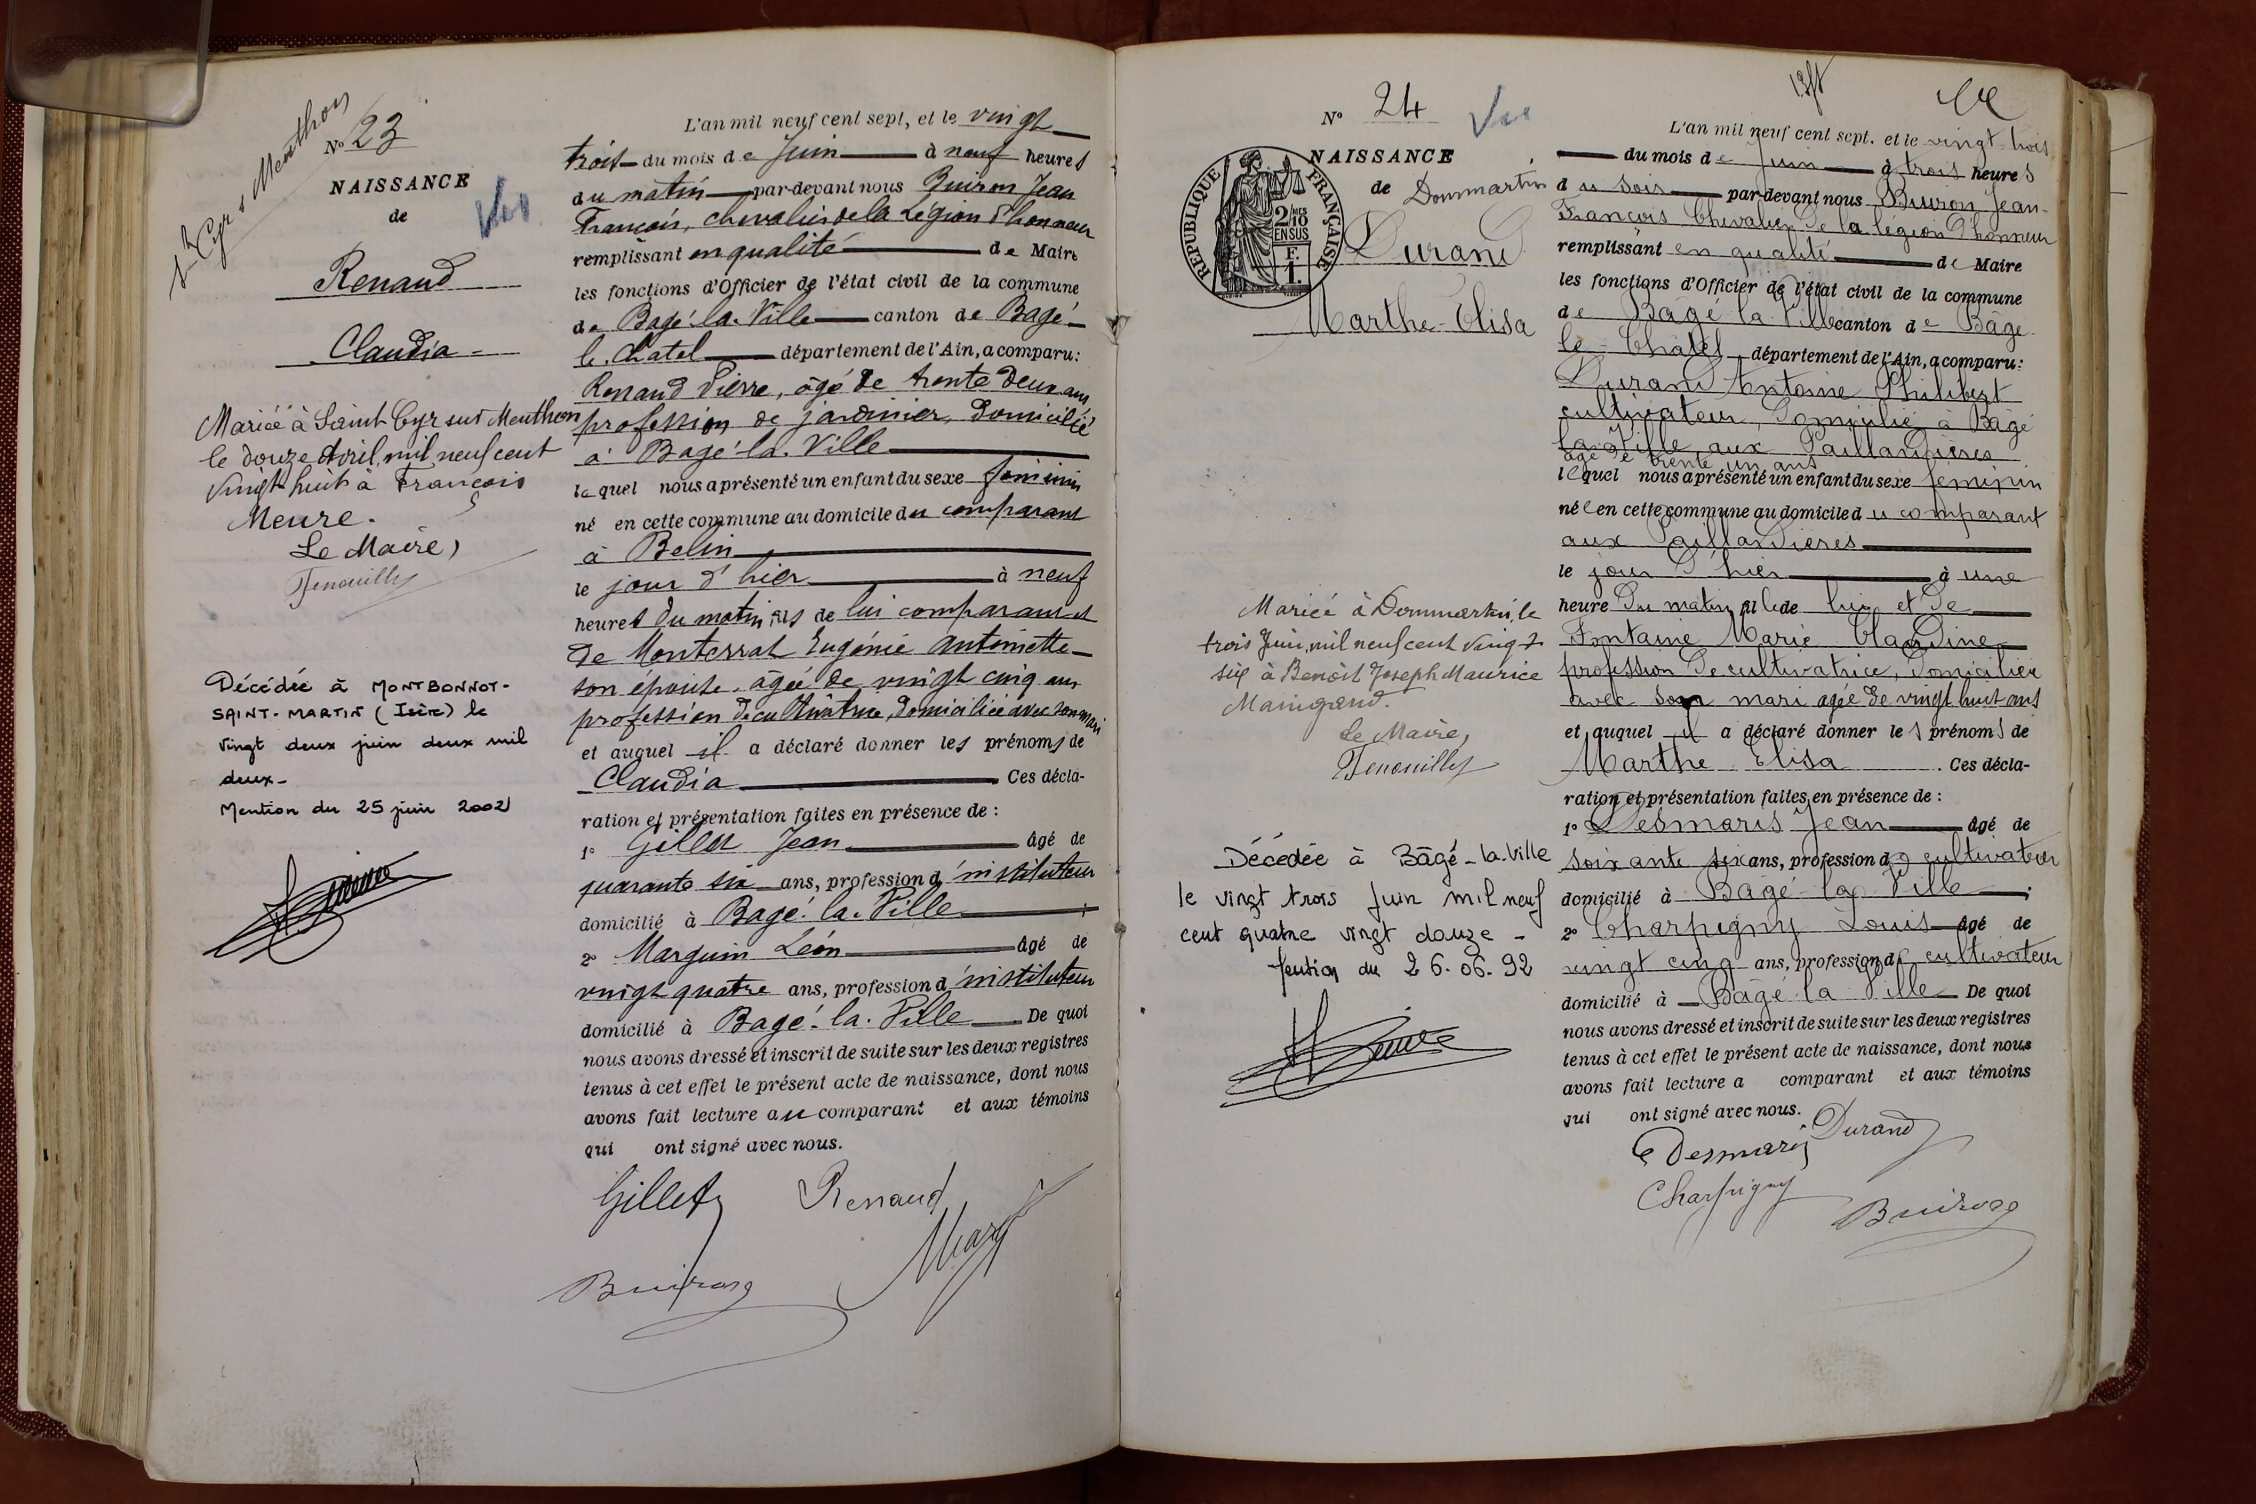 St Cyr s Menthon
No 23
NAISSANCE
de
Vu
Renaud
Claudia
Mariée à Saint Cyr sur Menthon
le douze Avril, mil neuf cent
vingt huit à François
Meure.
Le Maire,
Décédée à MONTBONNOT-
SAINT-MARTIN (Isère) le
vingt deux juin deux mil
deux-
Mention du 25 juin 2002
L'an mil neuf cent sept, et le vingt
trois du mois de Juin à neuf heures
du matin par-devant nous Buiron Jean
François, chevalier de la Légion d'honneur
remplissant en qualité de Maire
les fonctions d'Officier de l'état civil de la commune
de Bagé-la-Ville canton de Bagé-
le-Chatel département de l'Ain, a comparu:
Renaud Pierre, âgé de trente deux ans
profession de jardinier, domicilié
à Bagé-la-Ville
lequel nous a présenté un enfant du sexe féminin
né en cette commune au domicile du comparant
à Belin
le jour d'hier à neuf
heures du matin, fils de lui comparant et
de Monterrat Eugénie Antoinette
son épouse, agée de vingt cinq ans
profession de cultivatrice, domiciliée avec son mari
et auquel il a déclaré donner les prénoms de
Claudia Ces décla-
ration et présentation faites en présence de :
1° Gillet Jean âgé de
quarante six ans, profession d'instituteur
domicilié à Bagé-la-Ville ;
2° Marguin Léon âgé de
vingt quatre ans, profession d'instituteur
domicilié à Bagé-la-Ville De quoi
nous avons dressé et inscrit de suite sur les deux registres
tenus à cet effet le présent acte de naissance, dont nous
avons fait lecture au comparant et aux témoins
qui ont signé avec nous.
Gillet Renaud
Buiron
No 24 Vu
NAISSANCE
de Dommartin
RÉPUBLIQUE FRANÇAISE
2/10 MES
EN SUS
F.
1.
Durand
Marthe-Elisa
Mariée à Dommartin, le
trois Juin, mil neuf cent vingt
six à Benoît Joseph Maurice
Maingand.
Le Maire,
Décédée à Bâgé-la-Ville
le vingt trois Juin mil neuf
cent quatre vingt douze -
Mention du 26.06.92
L'an mil neuf cent sept. et le vingt-trois
du mois de Juin à trois heures
du soir par-devant nous Buiron Jean-
François Chevalier de la légion d'honneur
remplissant en qualité de Maire
les fonctions d'Officier de l'état civil de la commune
de Bâgé la Ville canton de Bâgé
le-Châtel département de l'Ain, a comparu:
Durand Antoine Philibert
cultivateur, domicilié à Bâgé
la-Ville aux Paillardières
âgé de trente un ans
lequel nous a présenté un enfant du sexe féminin
née en cette commune au domicile du comparant
aux Paillardières
le jour d'hier à une
heure du matin fille de lui et de
Fontaine Marie Claudine
profession de cultivatrice, domiciliée
avec son mari agée de vingt huit ans
et auquel il a déclaré donner les prénoms de
Marthe Elisa . Ces décla-
ration et présentation faites en présence de :
1° Desmaris Jean âgé de
soixante six ans, profession de cultivateur
domicilié à Bâgé-la-Ville ;
2° Charpigny Louis âgé de
vingt cinq ans, profession de cultivateur
domicilié à Bâgé-la-Ville De quoi
nous avons dressé et inscrit de suite sur les deux registres
tenus à cet effet le présent acte de naissance, dont nous
avons fait lecture a comparant et aux témoins
qui ont signé avec nous.
Durand
Desmaris
Charpigny
Buiron